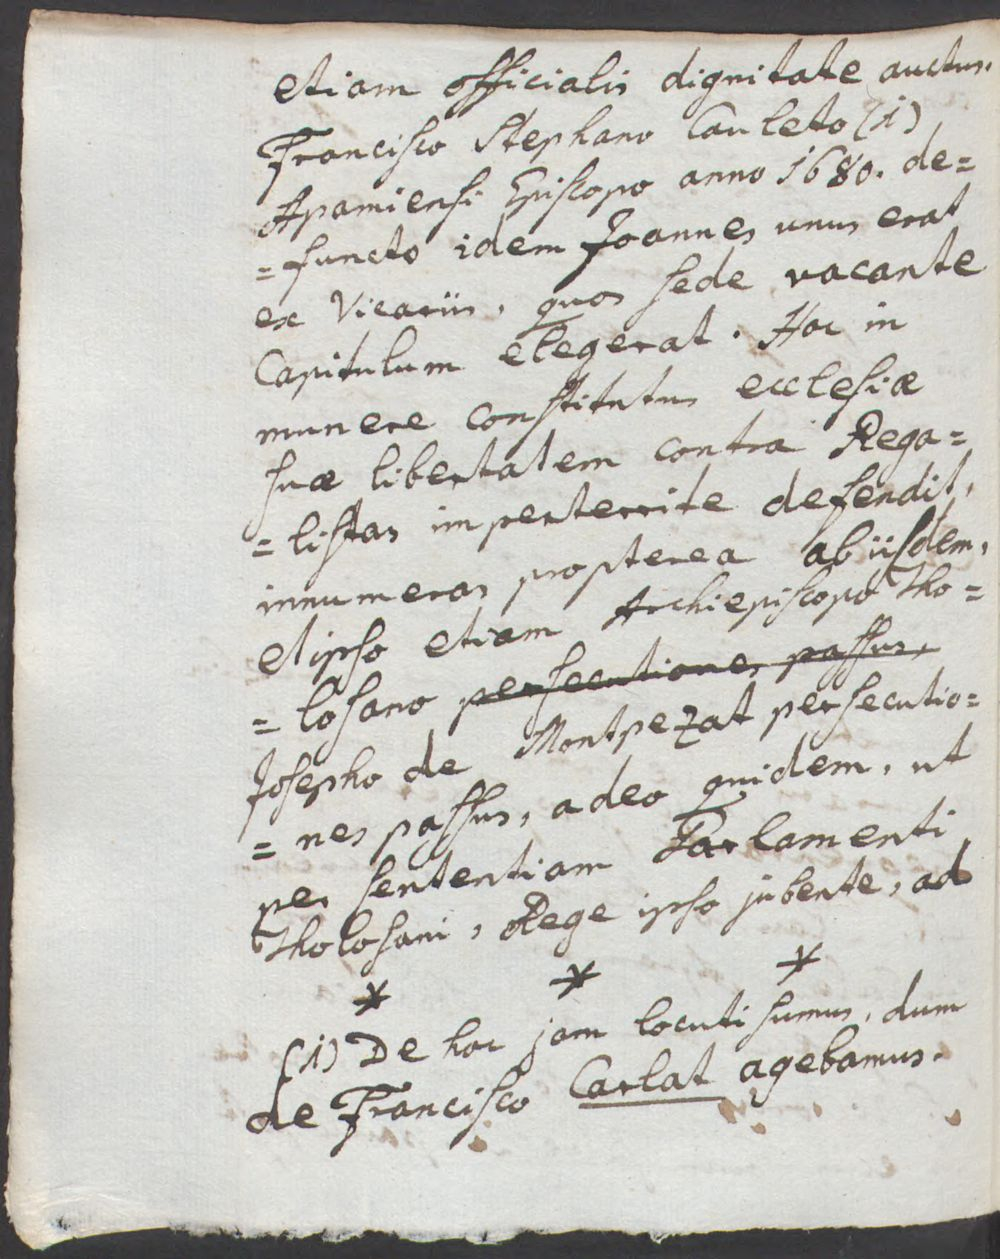 etiam officialis dignitate auctus.
Francisco Stephano Cauleto (1)
Apamiensi Episcopo anno 1680. de=
=functo idem Joannes unus erat
ex Vicariis, quos sede vacante
Capitulum elegerat. Hoc in
munere constitutus ecclesiæ
suæ libertatem contra Rega=
=listas imperterrite defendit,
innumeras propterea ab iisdem,
et ipso etiam Archiepiscopo Tho=
=losano persecutiones passus,
Josepho de Montpezat persecutio=
=nes passus, adeo quidem, ut
per sententiam Parlamenti
Tholosani, Rege ipso jubente, ad
* * *
(1) De hoc jam locuti sumus, dum
de Francisco Carlat agebamus.